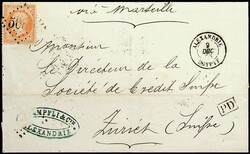 via Marseille
ALEXANDRIE
2
DEC
EGYPTE
Monsieur
Le Directeur de la
Société de Crédit Suisse
PD
Zurich (Suisse)
ALEXANDRIE